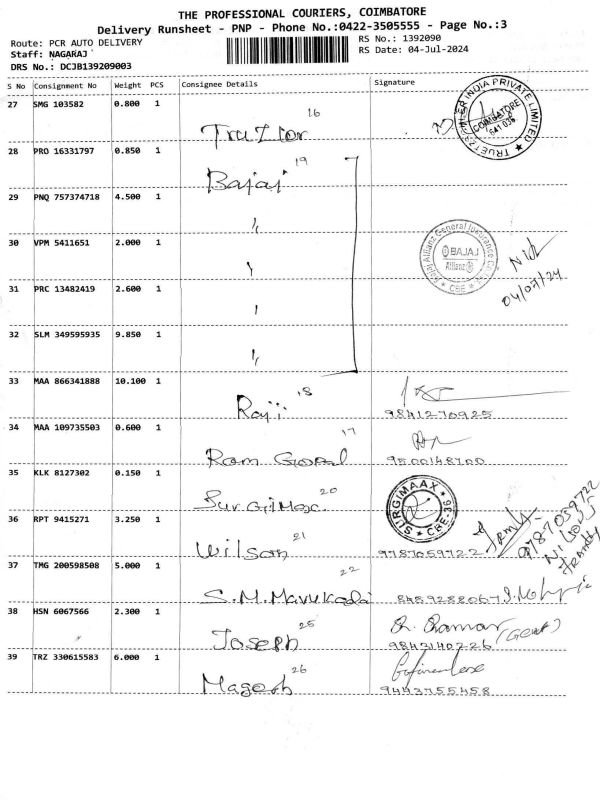 THE PROFESSIONAL COURIERS, COIMBATORE
Delivery Runsheet - PNP - Phone No.:0422-3505555 - Page No.:3
Route: PCR AUTO DELIVERY
RS No.: 1392090
Staff: NAGARAJ
RS Date: 04-Jul-2024
DRS No.: DCJB139209003
S No Consignment No Weight PCS Consignee Details Signature
27 SMG 103582 0.800 1
16
COIMBATORE
641 036
28 PRO 16331797 0.850 1
Bajaj 19
29 PNQ 757374718 4.500 1
〃
30 VPM 5411651 2.000 1
Bajaj Allianz General Insurance Co.
BAJAJ
Allianz
CBE
04/07/24
31 PRC 13482419 2.600 1
32 SLM 349595935 9.850 1
〃
33 MAA 866341888 10.100 1
Raji 18
9841270925
34 MAA 109735503 0.600 1
Ram Gopal 17
9500148700
35 KLK 8127302 0.150 1
SurgiMax 20
SURGIMAAX
CBE-36
36 RPT 9415271 3.250 1
Wilson 21
9787059722
9787059722
37 TMG 200598508 5.000 1
22
S.M. 8489288067
38 HSN 6067566 2.300 1
Joseph 25
R. Raman (Gent)
9842140226
39 TRZ 330615583 6.000 1
Magesh 26
9443755458